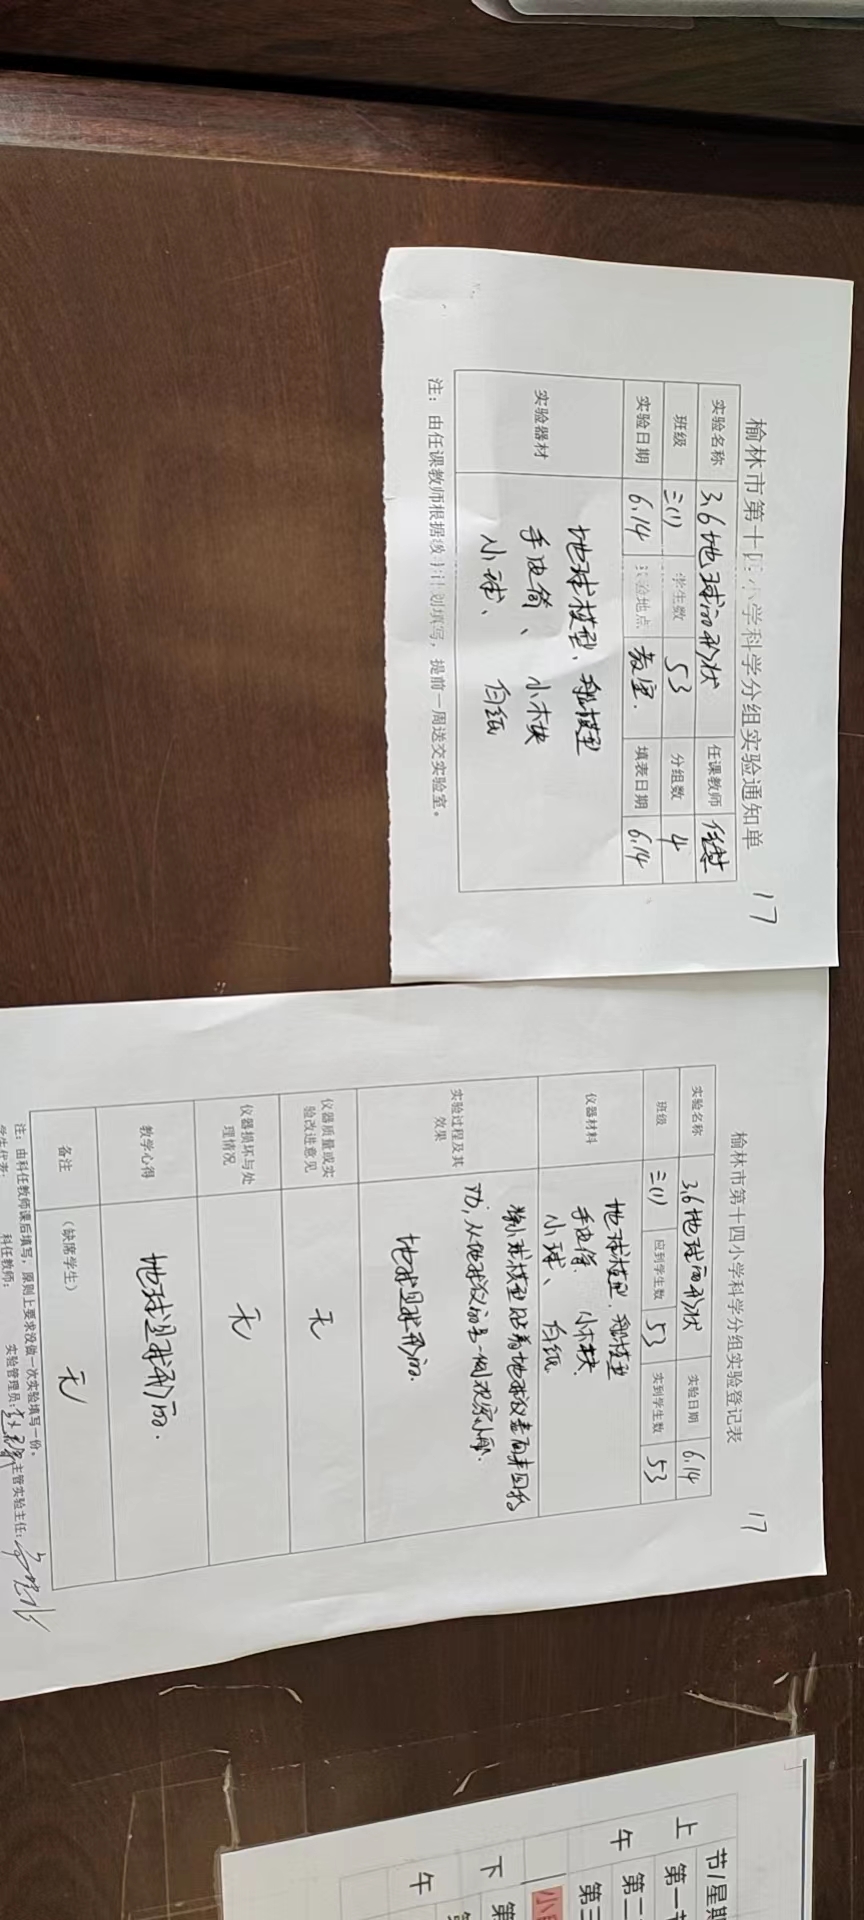 榆林市第十四小学科学分组实验通知单
17
实验名称 3.6地球的形状 任课教师
班级 三(1) 学生数 53 分组数 4
实验日期 6.14 实验地点 教室. 填表日期 6.14
实验器材
地球模型、船模型
手电筒、小木块
小球、白纸
注：由任课教师根据教学计划填写，提前一周送交实验室。
榆林市第十四小学科学分组实验登记表
17
实验名称 3.6地球的形状 实验日期 6.14
班级 三(1) 应到学生数 53 实到学生数 53
仪器材料
地球模型、船模型
手电筒、小木块.
小球、白纸
实验过程及其
效果
将小球模型贴着地球仪表面来回移
动，从地球仪的另一侧观察小船.
地球是球形的.
仪器质量或实
验改进意见
无
仪器损坏与处
理情况
无
教学心得
地球是球形的.
备注
（缺席学生）
无
注：由科任教师课后填写，原则上要求没做一次实验填写一份。
学生代表： 科任教师： 实验管理员： 主管实验主任：
节/星期
上
午
第一节
第二
第三
下
午
第